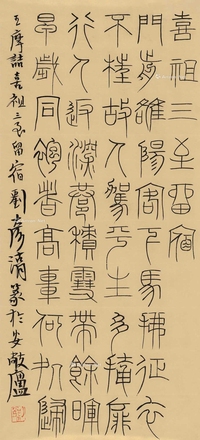 喜祖三至留宿
門歬雒陽客下馬拂征衣
不枉故人駕平生多揜扉
行人返深巷積雪帶餘暉
早歲同袍者高車何処歸
王摩詰喜祖三至留宿劉彥清篆於安敝廬